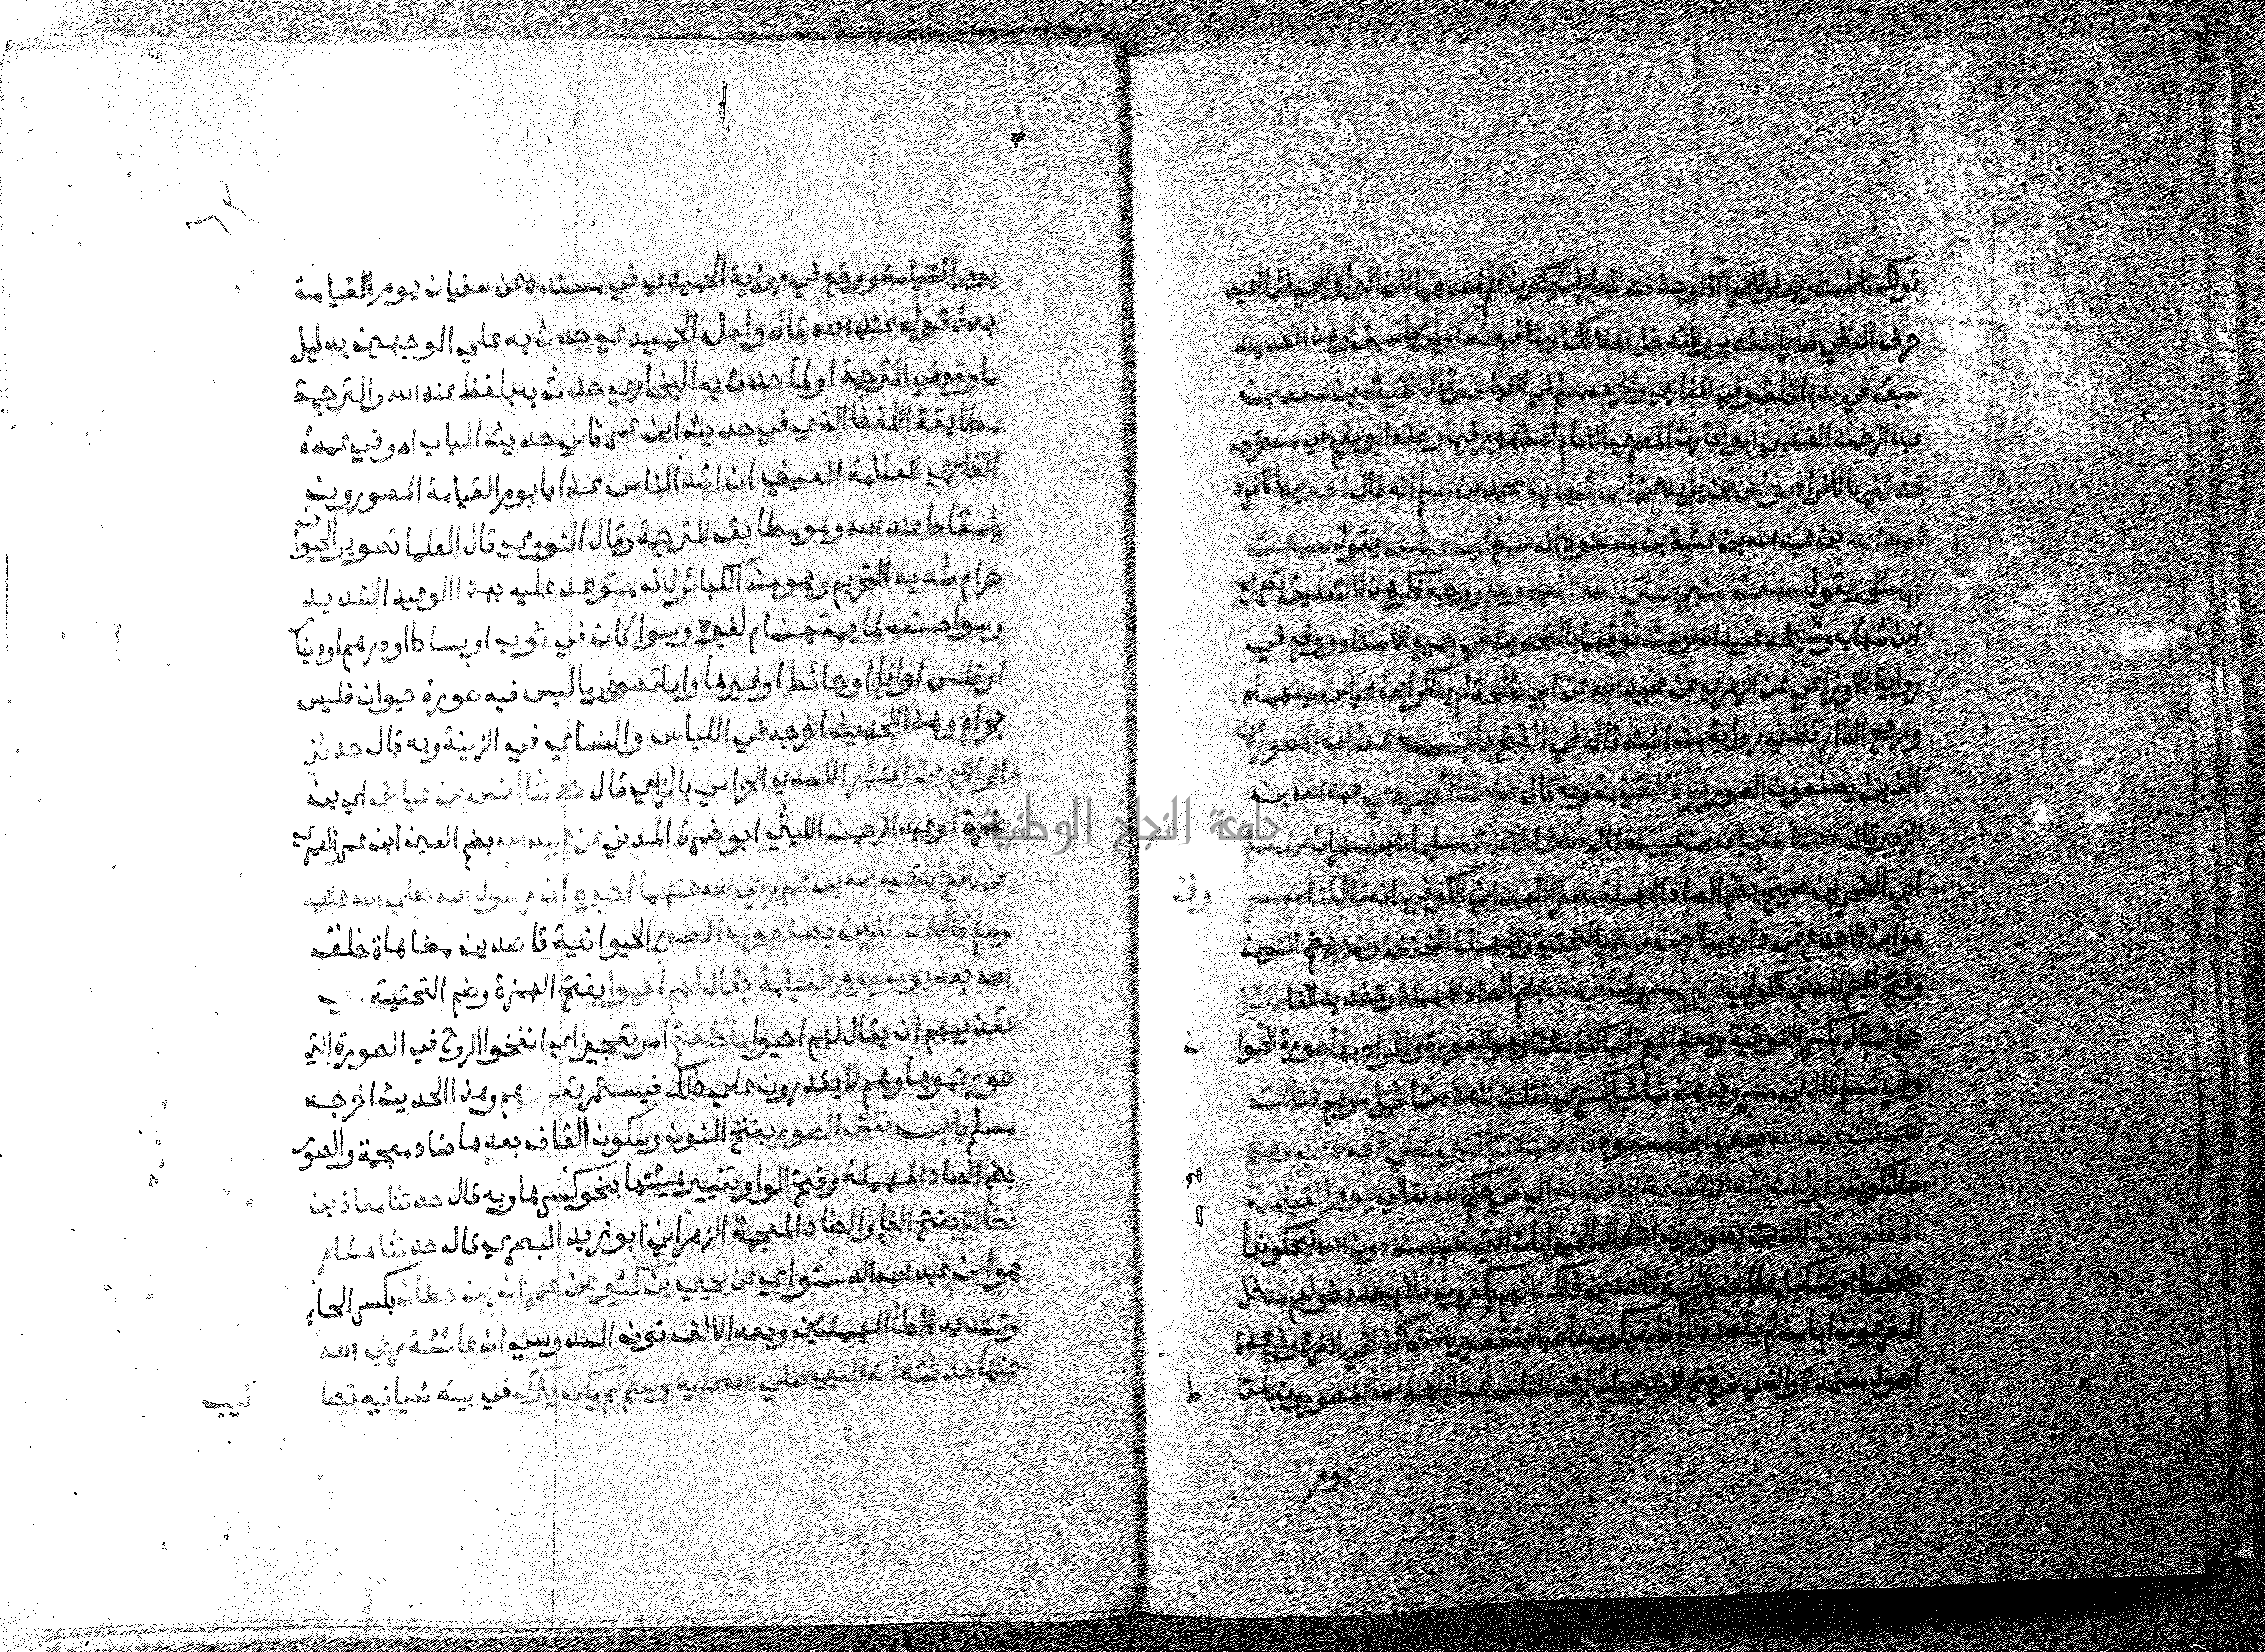 قولك ما كلمت زيدا ولا عمرا اذ لو حذفت لا لجاز ان يكون كلم احدهما لان الواو للجمع فلما اعيد
حرف النفي صار التقدير ولا تدخل الملائكة بيتا فيه تصاوير كما سبق وهذا الحديث
سبق في بدا الخلق وفي المغازي واخرجه مسلم في اللباس وقال الليث بن سعد بن
عبد الرحمن الفهمي ابو الحارث المصري الامام المشهور فيما وصله ابو نعيم في مستخرجه
حدثني بالافراد يونس بن يزيد عن ابن شهاب محمد بن مسلم انه قال اخبرني بالافراد
عبيد الله بن عبد الله بن عتبة بن مسعود انه سمع ابن عباس يقول سمعت
ابا طلحة يقول سمعت النبي صلي الله عليه وسلم ووجه ذكر هذا التعليق تصريح
ابن شهاب وشيخه عبيد الله ومن فوقهما بالتحديث في جميع الاسناد ووقع في
رواية الاوزاعي عن الزهري عن عبيد الله عن ابي طلحة لم يذكر ابن عباس بينهما
ورجح الدارقطني رواية من اثبته قاله في الفتح باب عذاب المصورين
الذين يصنعون الصور يوم القيامة وبه قال حدثنا الحميدي عبد الله بن
الزبير قال حدثنا سفيان بن عيينة قال حدثنا الاعمش سليمان بن مهران عن مسلم
ابي الضحي بن صبيح بضم الصاد المهملة مصغرا الهمداني الكوفي انه قال كنا مع مسر وق
هو ابن الاجدع في دار يسار بن نمير بالتحتية والمهملة المخففة ونمير بضم النون
وفتح الميم المدني الكوفي فراي مسروق في صفته بضم الصاد المهملة وتشديد الفا تماثيل
جمع تمثال بكسر الفوقية وبعد الميم الساكنة مثلثة وهو الصورة والمراد بها صورة الحيوا ن
وفي مسلم قال لي مسروق هذه تماثيل كسري فقلت لا هذه تماثيل مريم فقالت
سمعت عبد الله يعني ابن مسعود قال سمعت النبي صلي الله عليه وسلم
حال كونه يقول ان اشد الناس عذابا عند الله اي في حكم الله تعالي يوم القيامة
المصورون الذين يصورون اشكال الحيوانات التي تعبد من دون الله فيحكونها
بتخليط او تشكيل عالمين بالحرمة قاصدين ذلك لانهم يكفرون فلا يبعد دخولهم مدخل
ال فرعون اما من لم يقصد ذلك فانه يكون عاصيا بتقصيره فقط كذا في الفرع وفي عدة
اصول معتمدة والذي في فتح الباري ان اشد الناس عذابا عند الله المصورون باسقا ط
يوم
يوم القيامة ووقع في رواية الحميدي في مسنده عن سفيان يوم القيامة
بدل قوله عند الله قال ولعل الحميدي حدث به علي الوجهين بدليل
ما وقع في الترجمة او لما حدث به البخاري حدث به بلفظ عند الله والترجمة
مطابقة للفظ الذي في حديث ابن عمر ثاني حديثه الباب اه وفي عمدة
القاري للعلامة العيني ان اشد الناس عذابا يوم القيامة المصورون
باسقاط عند الله وهو مطابق للترجمة وقال النووي قال العلما تصوير الحيوان
حرام شديد التحريم وهو من الكبائر لانه متوعد عليه بهذا الوعيد الشديد
وسوا صنعه لما يمتهن ام لغيره وسوا كان في ثوب او بساط او درهم او دينار
او فلس او انا او حائط او غيرها واما تصوير ما ليس فيه صورة حيوان فليس
بحرام وهذا الحديث اخرجه في اللباس والنساي في الزينة وبه قال حدثني
ابراهيم بن المنذر الاسدي الحزامي بالزاي قال حدثنا انس بن عياض اي بن
ضمرة او عبد الرحمن الليثي ابو ضمرة المدني عن عبيد الله بضم العين ابن عمر العمري
عن نافع ان عبد الله بن عمر رضي الله عنهما اخبره ان رسول الله صلي الله عليه
وسلم قال ان الذين يصنعون الصور الحيوانية قاصدين مضاهاة خلق
الله يعذبون يوم القيامة يقال لهم احيوا بفتح الهمزة وضم التحتية
تعذيبهم ان يقال لهم احيوا ما خلقتم امر تعجيز اي انفخوا الروح في الصورة التي
صورتموها وهم لا يقدرون علي ذلك فيستمر تعـ هم وهذا الحديث اخرجه
مسلم باب نقض الصور بفتح النون وسكون القاف بعدها ضاد معجمة والصور
بضم الصاد المهملة وفتح الواو وتغيير هيئتها بنحو كسرها وبه قال حدثنا معاذ بن
فضالة بفتح الفا والضاد المعجمة الزهراني ابو زيد البصري قال حدثنا هشام
هو ابن عبد الله الدستواي عن يحيي بن كثير عن عمران بن حطان بكسر الحا
وتشديد الطا المهملتين وبعد الالف نون السدوسي ان عائشة رضي الله
عنها حدثته ان النبي صلي الله عليه وسلم لم يكن يترك في بيته شيا فيه تصا
ليب
جامعة النجاح الوطنية